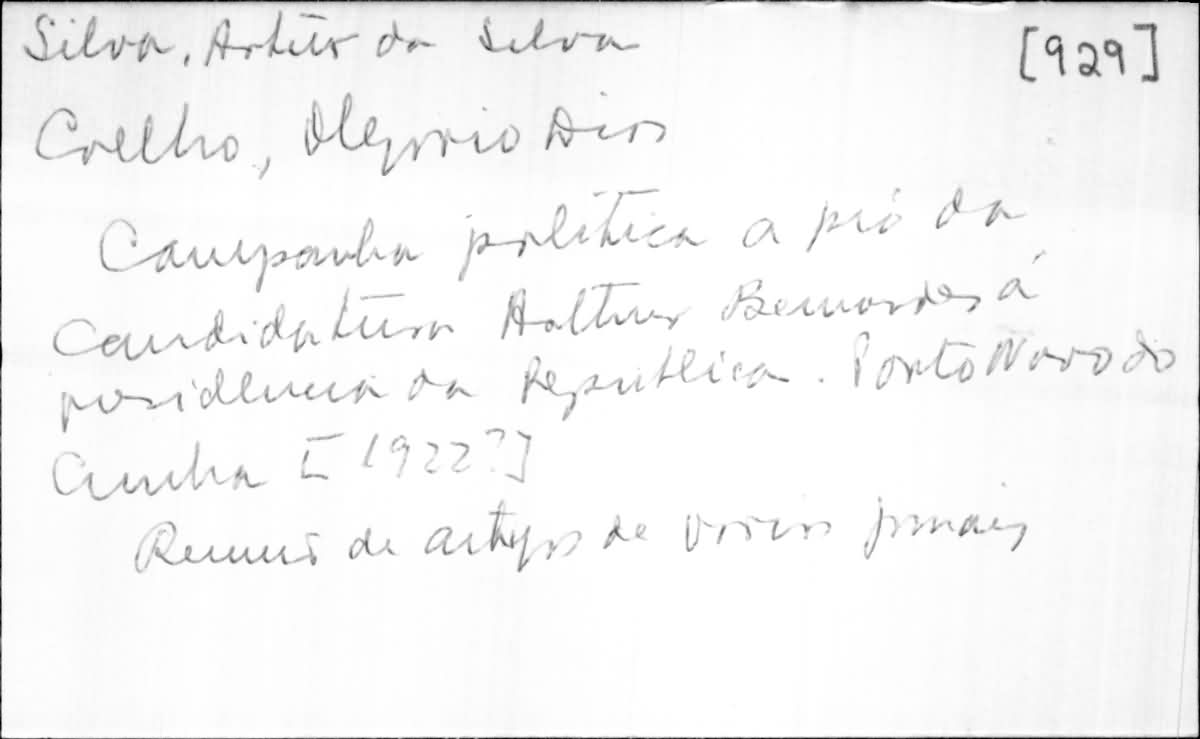 Silva, Artur da Silva
[929]
Coelho, Olegario Dias
Campanha politica a pró da
Candidatura Arthur Bernardes á
presidencia da Republica. Porto Novo do
Cunha [1922?]
Reunião de artigos de varios jornais